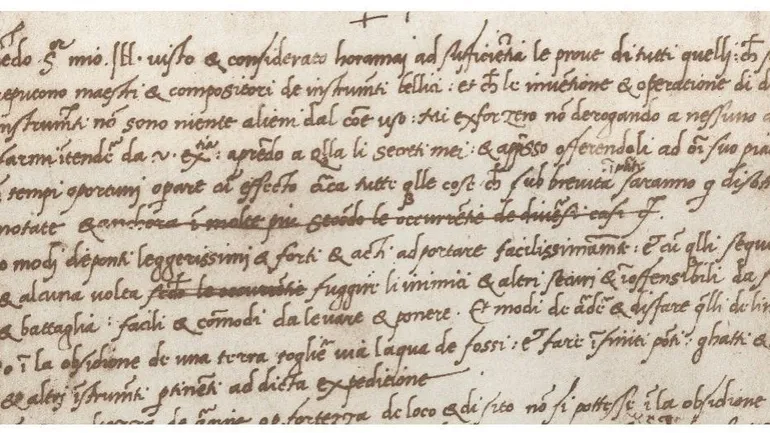 S.or mio. Ill. visto & considerato horamai ad sufficientia le prove di tutti quelli: ch
repucono maestri & compositori de instrumti bellici: et ch le inventione & operatione di d
instrumti nō sono niente alieni dal cōe uso: Mi exforzero nō derogando a nessuno a
farmi ītendr da v. ex.tia: aprēdo a qlla li secreti mei: & apsso offerendoli ad oī suo pia
tempi oportuni operare cū effecto circa tutte qlle cose ch sub brevità saranno q disot
notate & anchora ī molte piu secōdo le occurrentie de divesi casi
modi de ponti leggerissimi & forti & acti ad portare facilissimamte: et cū qlli segui
& alcuna volta le occurrentie fuggire li inimici & altri securi & īoffensibili da f
& battaglia: facili & cōmodi da levare & ponere. Et modi de ardr & disfare qlli de lin
ī la obsidione de una terra toglier via laqua de fossi: et fare īfiniti pōti ghatti &
& altri īstrumti ptinēti ad dicta expeditione
de loco & di sito nō si pottesse ī la obsidione